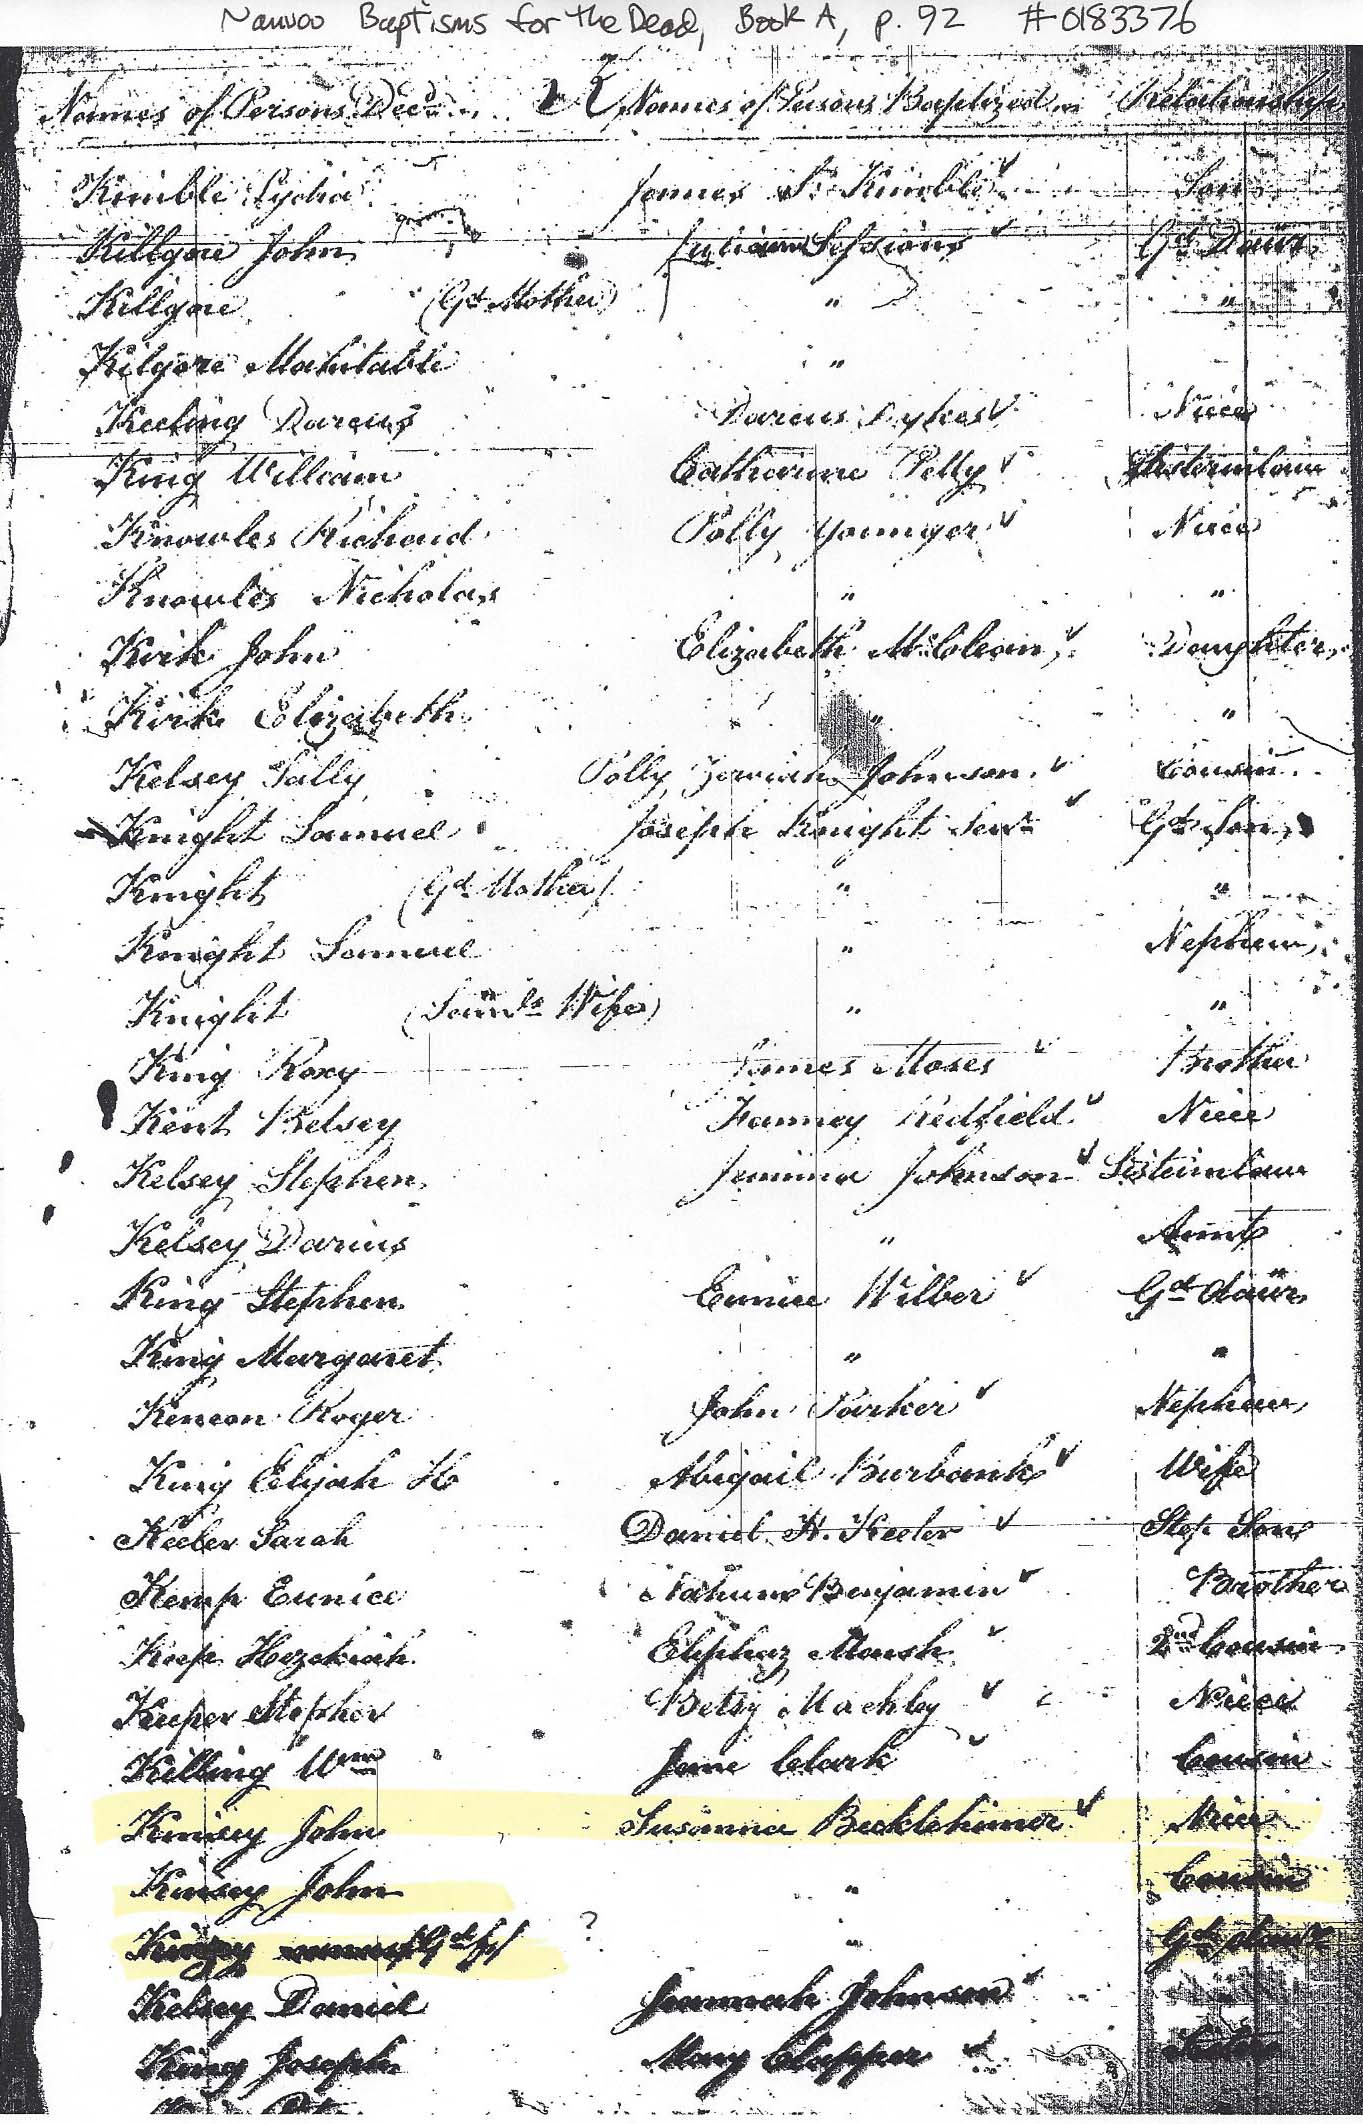 Nauvoo Baptisms for the Dead, Book A, p. 92 #0183376
Names of Persons Decd. Names of Persons Baptized Relationship
Kimble Lydia James S. Kimble Son
Killgore John Juliann Sessions Gd Daur
Killgore (Gd Mother) " "
Kilgore Mahitable "
Keeling Darcus Darcus Dykes Niece
King William Catharine Petty Sisterinlaw
Knowles Richard Polly Younger Niece
Knowles Nicholas " "
Kirk John Elizabeth McClean Daughter
Kirk Elizabeth " "
Kelsey Sally Polly Zerviah Johnson Cousin
Knight Samuel Joseph Knight Senr Gd Son
Knight (Gd Mother) " "
Knight Samuel " Nephew
Knight (Saml's Wife) " "
King Roxy James Moses Brother
Kent Betsey Fanney Redfield Niece
Kelsey Stephen Jemima Johnson Sisterinlaw
Kelsey Darius " Aunt
King Stephen Eunice Wilber Gd daur
King Margaret " "
Keneon Roger John Parker Nephew
King Elijah H Abigail Burbank Wife
Keeler Sarah Daniel H. Keeler Step Son
Kemp Eunice Nahum Benjamin Brother
Keep Hezekiah Eliphaz Marsh 2nd Cousin
Keeper Stepher Betsy Mackley Niece
Killing Wm Jane Clark Cousin
Kinsey John Susanna Beckleheimer Niece
Kinsey John " Cousin
Kinsey (Gd f) ? " Gd daur
Kelsey Daniel Johnson "
King Joseph Mary Clapper Sister